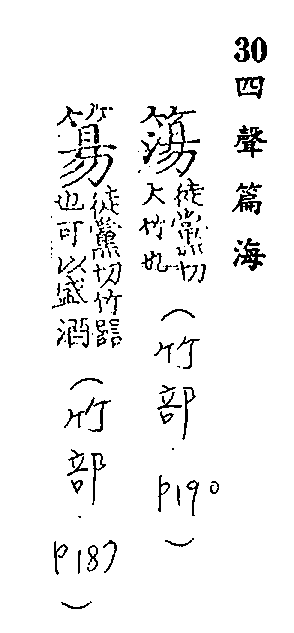 30 四聲篇海
簜 徒黨切
大竹也
(竹部.p190)
徒黨切竹器
也可以盛酒
(竹部.p187)